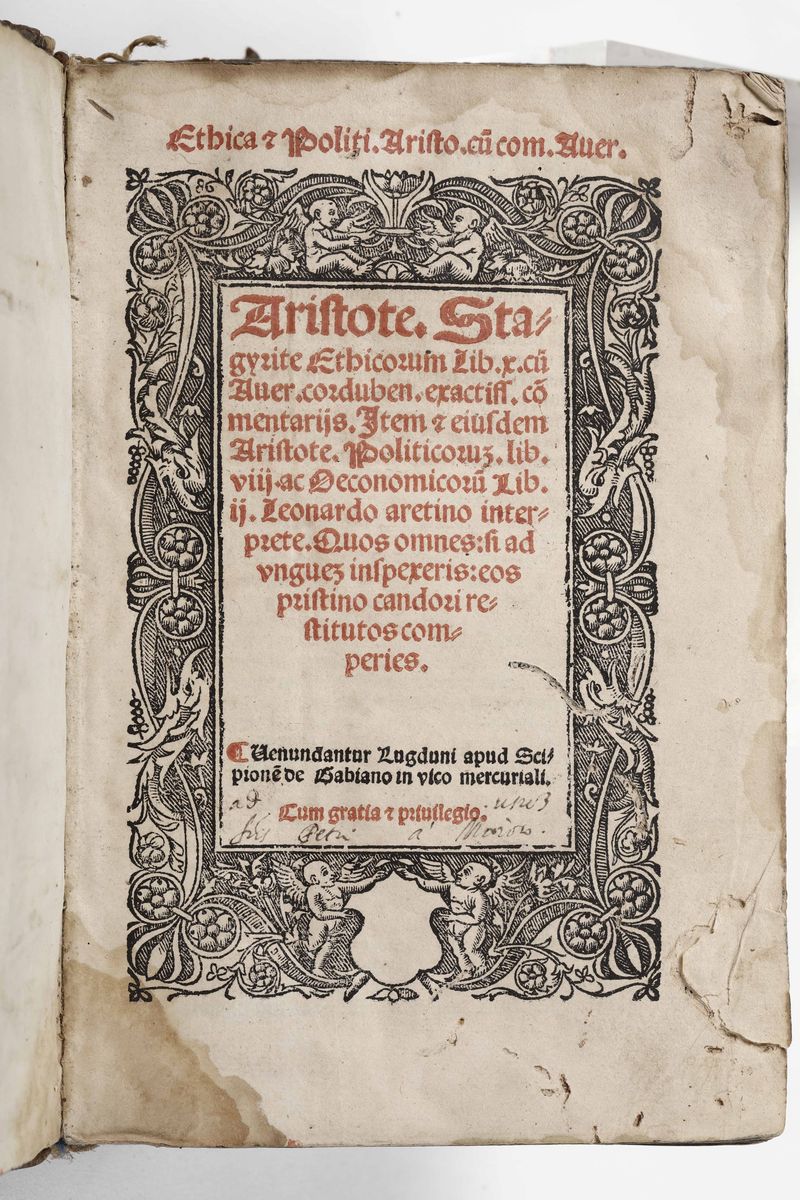 Ethica ⁊ Politi. Aristo. cū com. Auer.
Aristote. Sta⸗
gyrite Ethicorum Lib. x. cū
Auer. corduben. exactiss. cō
mentarijs. Item ⁊ eiusdem
Aristote. Politicoruꝫ. lib.
viij. ac Oeconomicorū Lib.
ij. Leonardo aretino inter⸗
prete. Quos omnes: si ad
vngueꝫ inspexeris: eos
pristino candori re⸗
stitutos com⸗
peries.
Venundantur Lugduni apud Sci⸗
pionē de Gabiano in vico mercuriali.
Cum gratia ⁊ priuilegio.
ad
Petri à